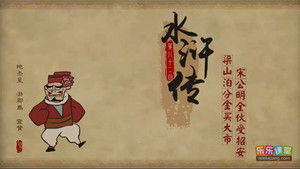 水浒传
第八十二回
梁山泊分金买大市
宋公明全伙受招安
地杰星
丑郡马
宣赞
乐乐课堂
leleketang.com